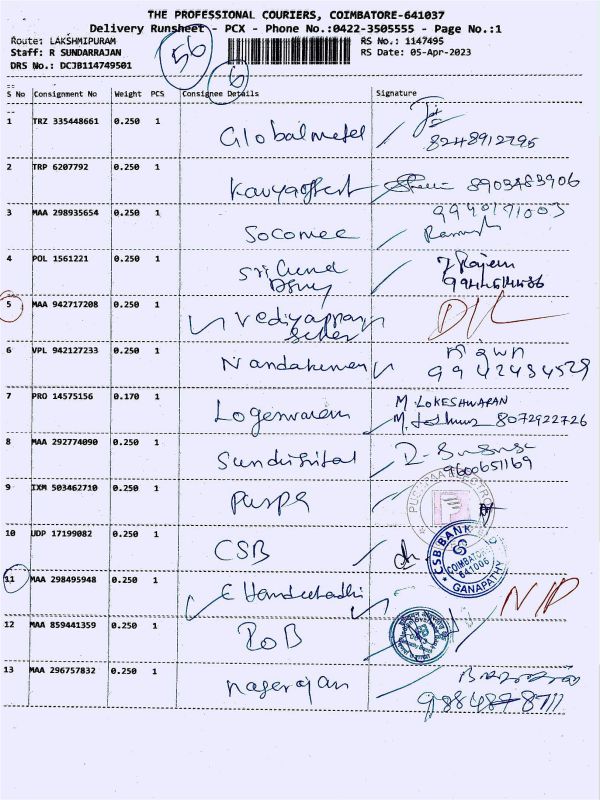 THE PROFESSIONAL COURIERS, COIMBATORE-641037
Delivery Runsheet - PCX - Phone No.:0422-3505555 - Page No.:1
Route: LAKSHMIPURAM RS No.: 1147495
Staff: R SUNDARRAJAN RS Date: 05-Apr-2023
DRS No.: DCJB114749501
56
6
S No Consignment No Weight PCS Consignee Details Signature
1 TRZ 335448661 0.250 1 Globalmetel
8248912795
2 TRP 6207792 0.250 1 8903483906
3 MAA 298935654 0.250 1 Socomec 9940171003
Ramesh
4 POL 1561221 0.250 1 Sri Guna
5 MAA 942717208 0.250 1 Vediyappan D/L
6 VPL 942127233 0.250 1 Nandakumar
9942434529
7 PRO 14575156 0.170 1 Logeswaran M. LOKESHWARAN
8072922726
8 MAA 292774090 0.250 1 Sundigital
9600651169
9 IXM 503462710 0.250 1 Puspa
10 UDP 17199082 0.250 1 CSB
CSB BANK
COIMBATORE
641006
GANAPATHY
11 MAA 298495948 0.250 1 N/D
12 MAA 859441359 0.250 1 BOB
13 MAA 296757832 0.250 1 nagerajan